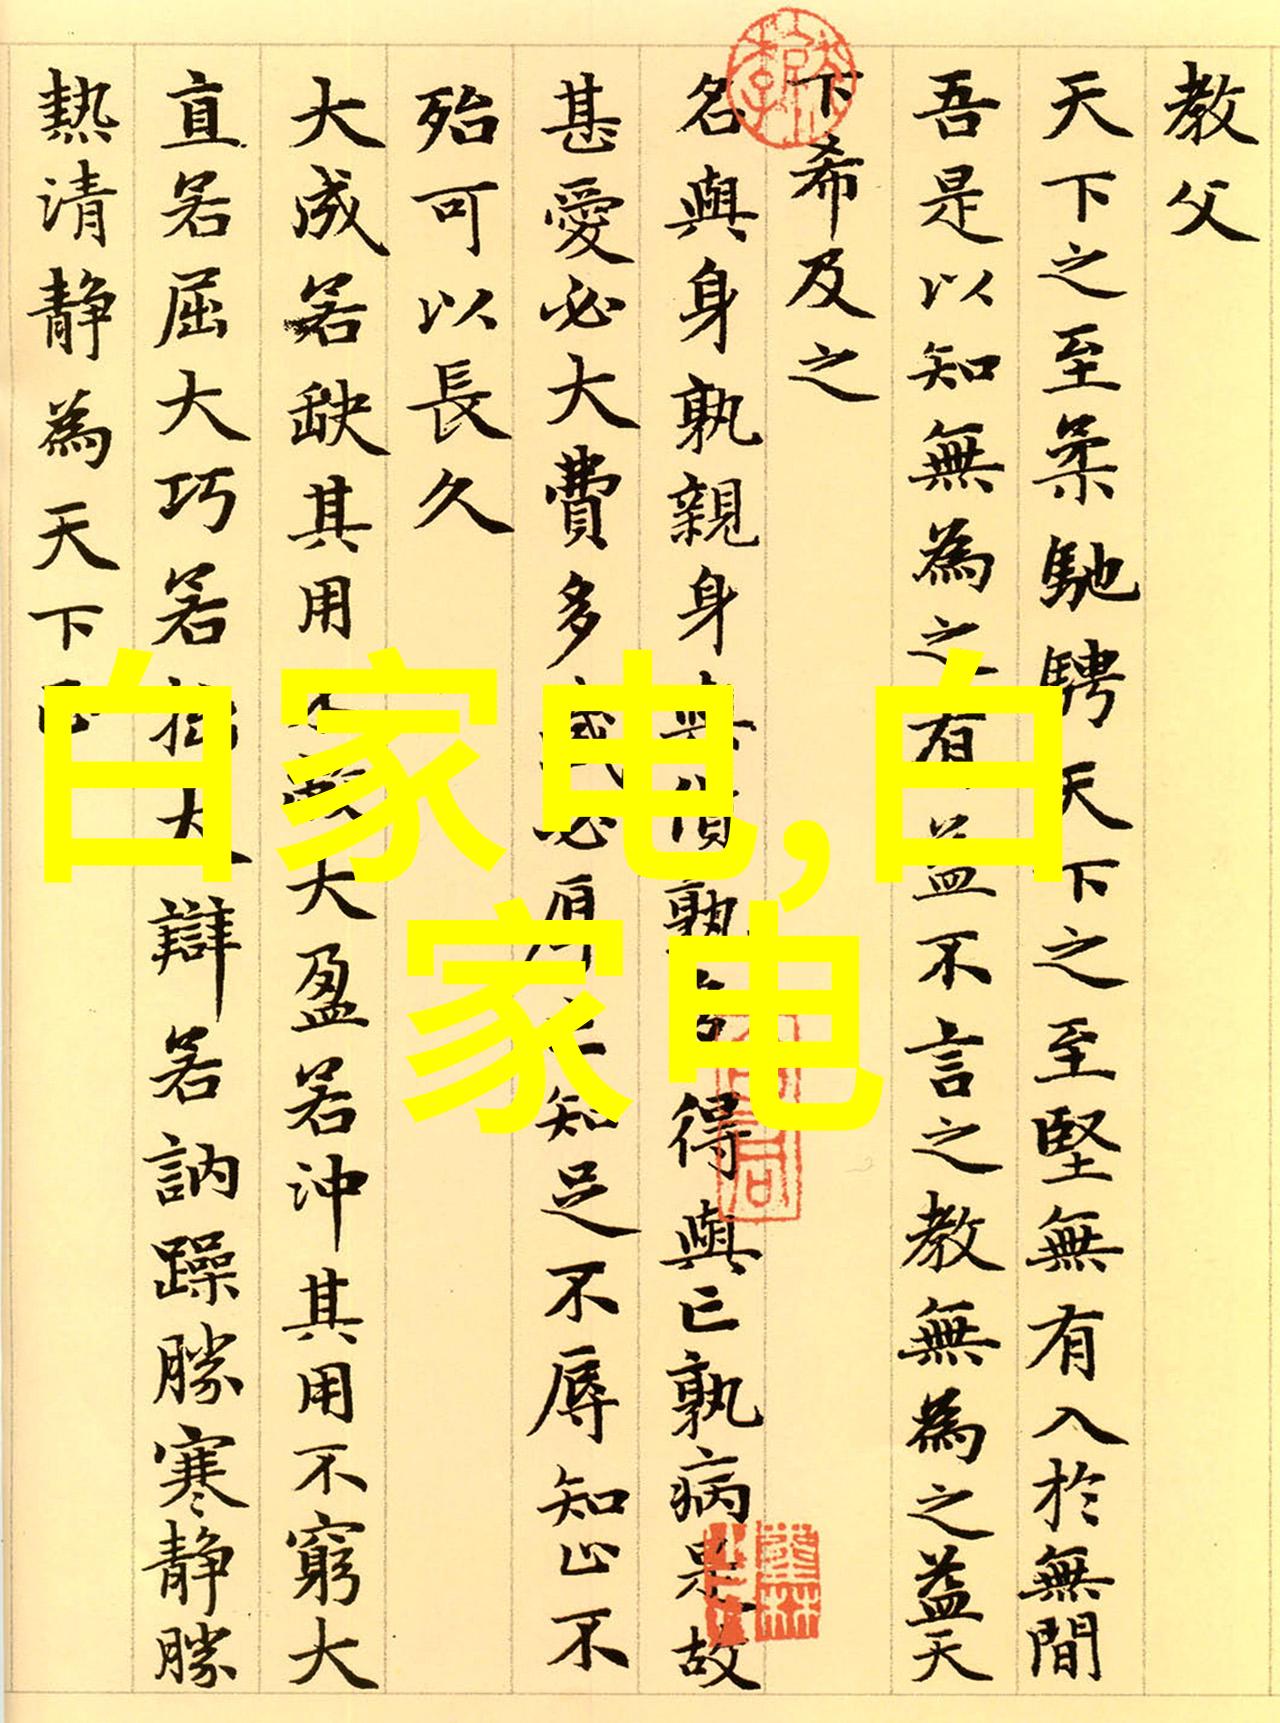 教父
天下之至柔馳騁天下之至堅無有入於無間
吾是以知無為之有益不言之教無為之益天
下希及之
名與身孰親身與貨孰多得與亡孰病是故
甚愛必大費多藏必厚亡知足不辱知止不
殆可以長久
大成若缺其用不敝大盈若沖其用不窮大
直若屈大巧若拙大辯若訥躁勝寒靜勝
熱清靜為天下正
白家电,白
家电